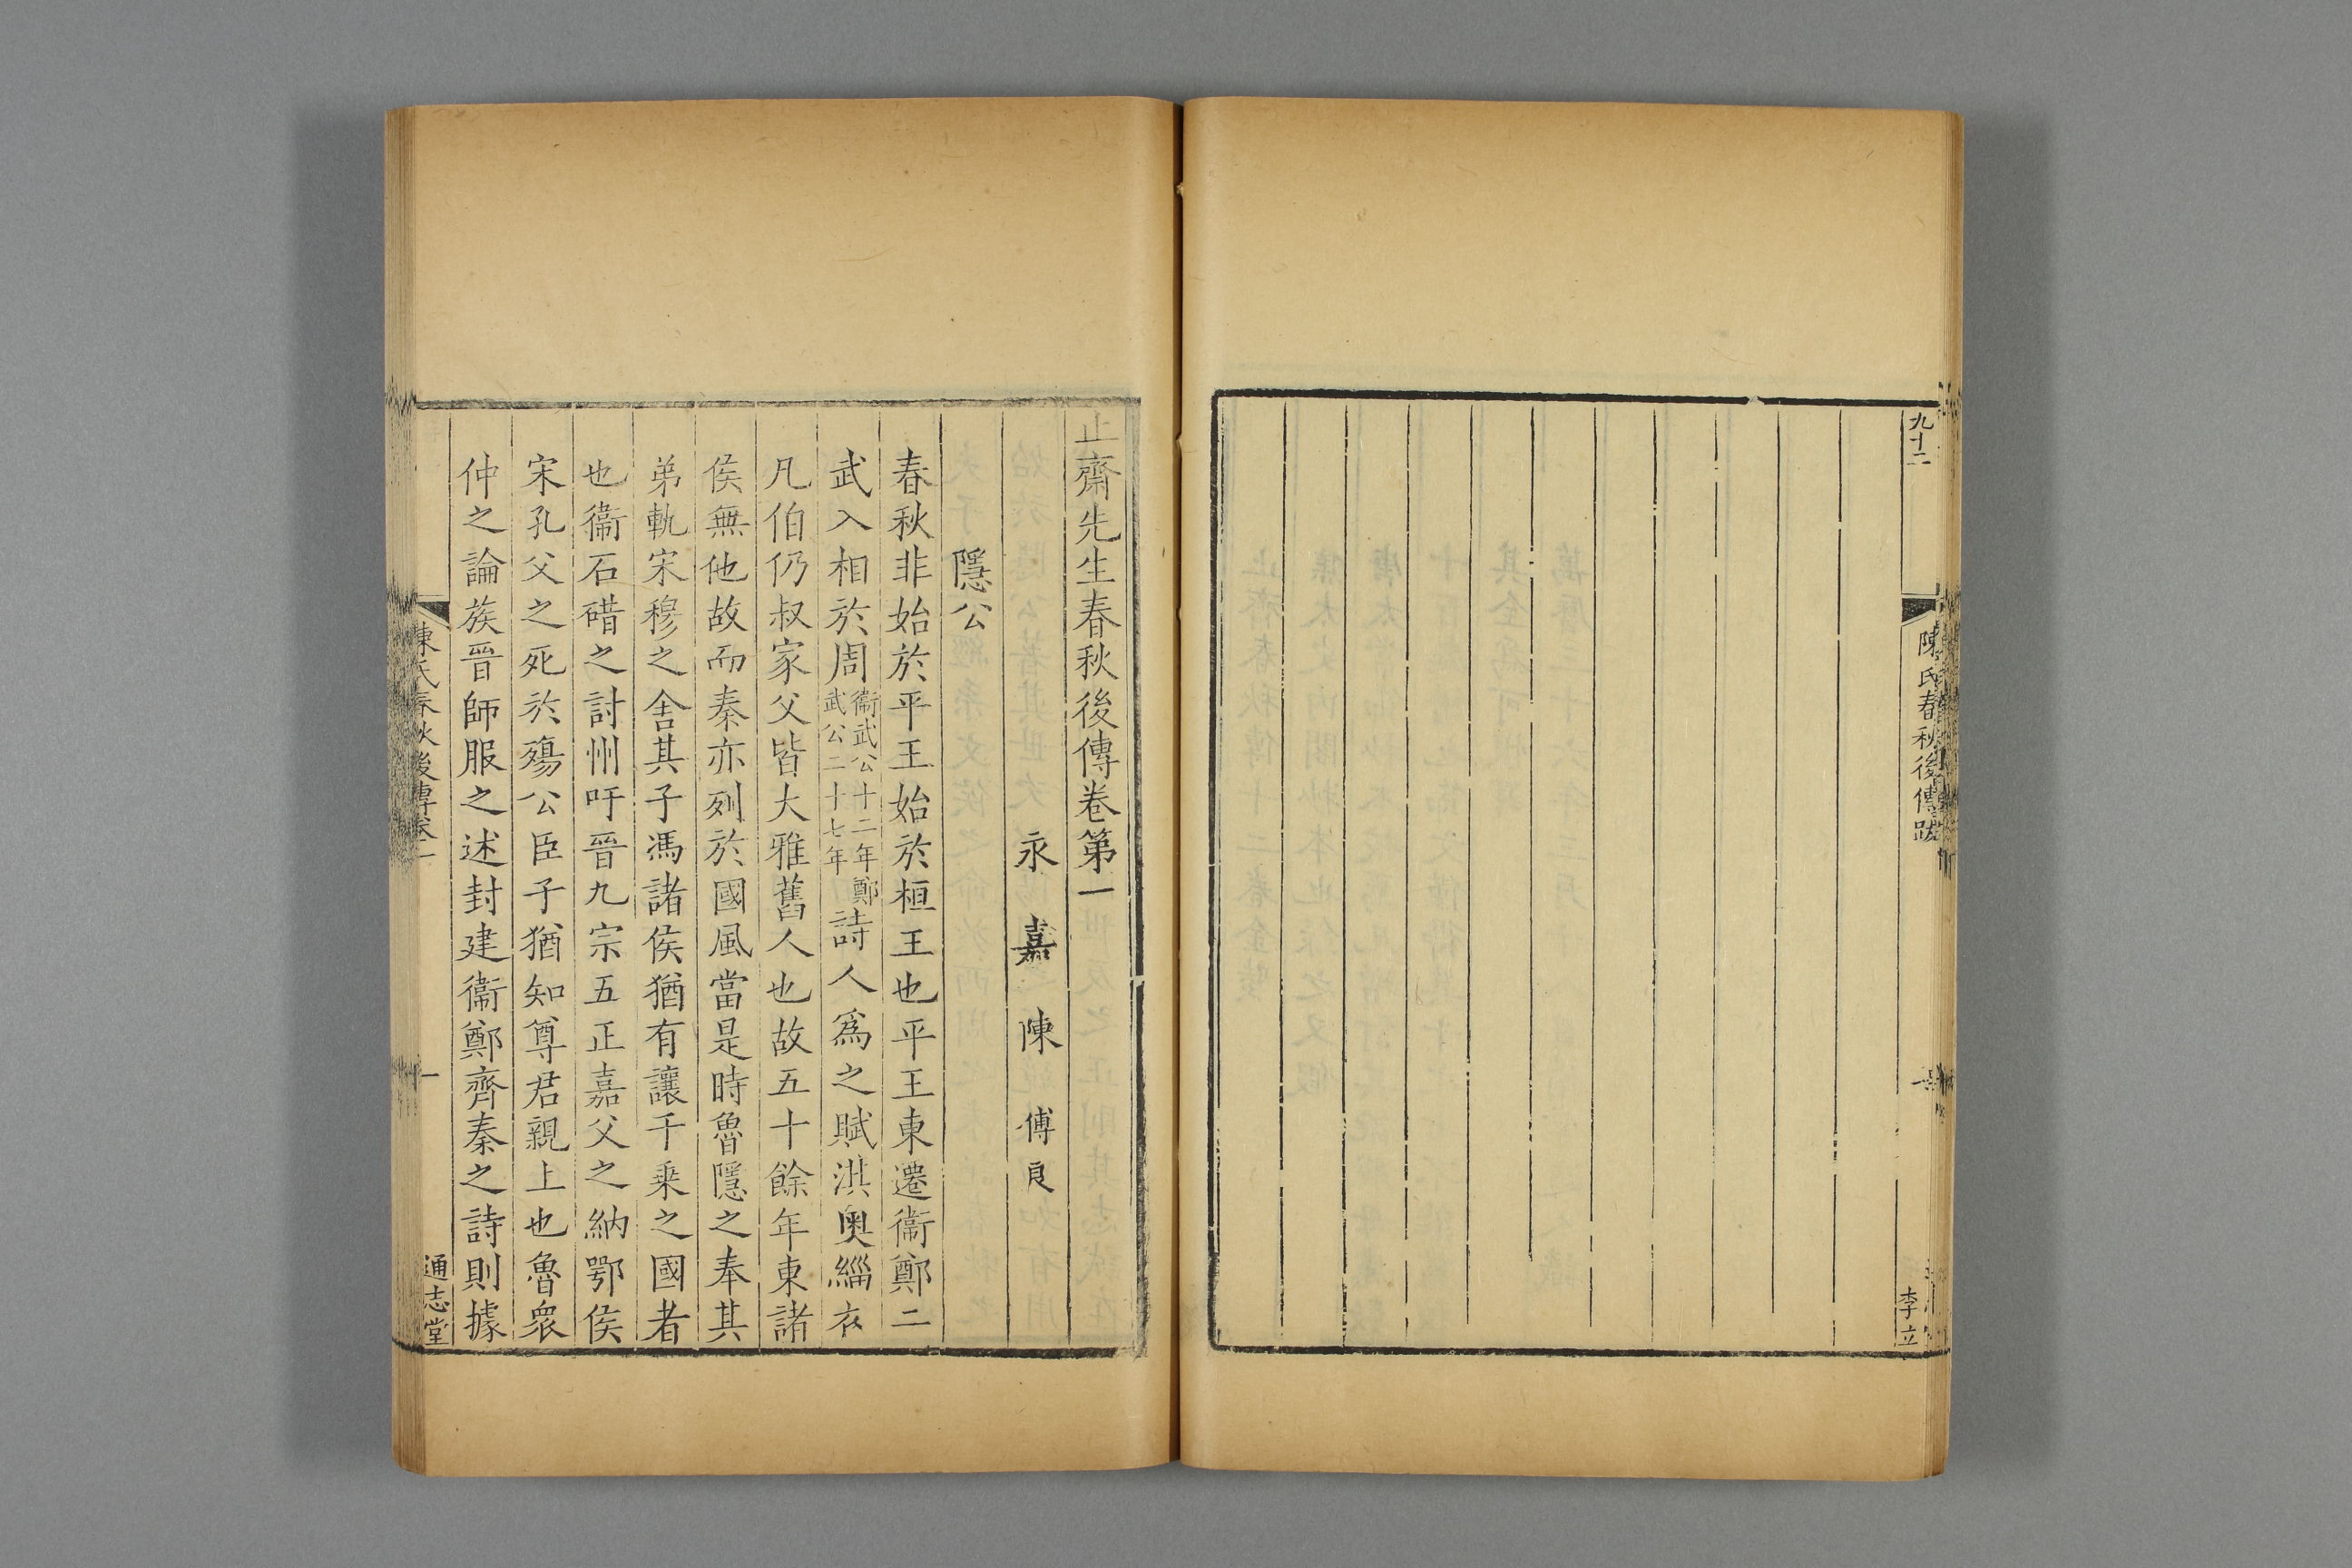 九十二
陳氏春秋後傳跋
李立
止齋先生春秋後傳卷第一
永嘉陳傅良
隱公
春秋非始於平王始於桓王也平王東遷衞鄭二
武入相於周衞武公十二年鄭武公二十七年詩人爲之賦淇奥緇衣
凡伯仍叔家父皆大雅舊人也故五十餘年東諸
侯無他故而秦亦列於國風當是時魯隱之奉其
弟軌宋穆之舍其子馮諸侯猶有讓千乗之國者
也衞石碏之討州吁晉九宗五正嘉父之納鄂侯
宋孔父之死於殤公臣子猶知尊君親上也魯衆
仲之論族晉師服之述封建衞鄭齊秦之詩則據
陳氏春秋後傳卷一
一
通志堂